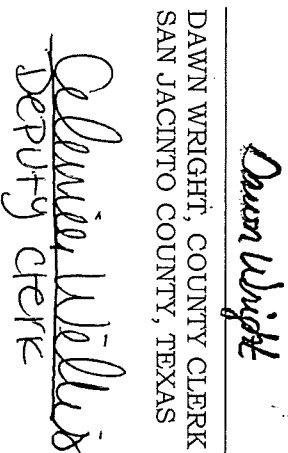 Dawn Wright
DAWN WRIGHT, COUNTY CLERK
SAN JACINTO COUNTY, TEXAS
Willis
Deputy Clerk